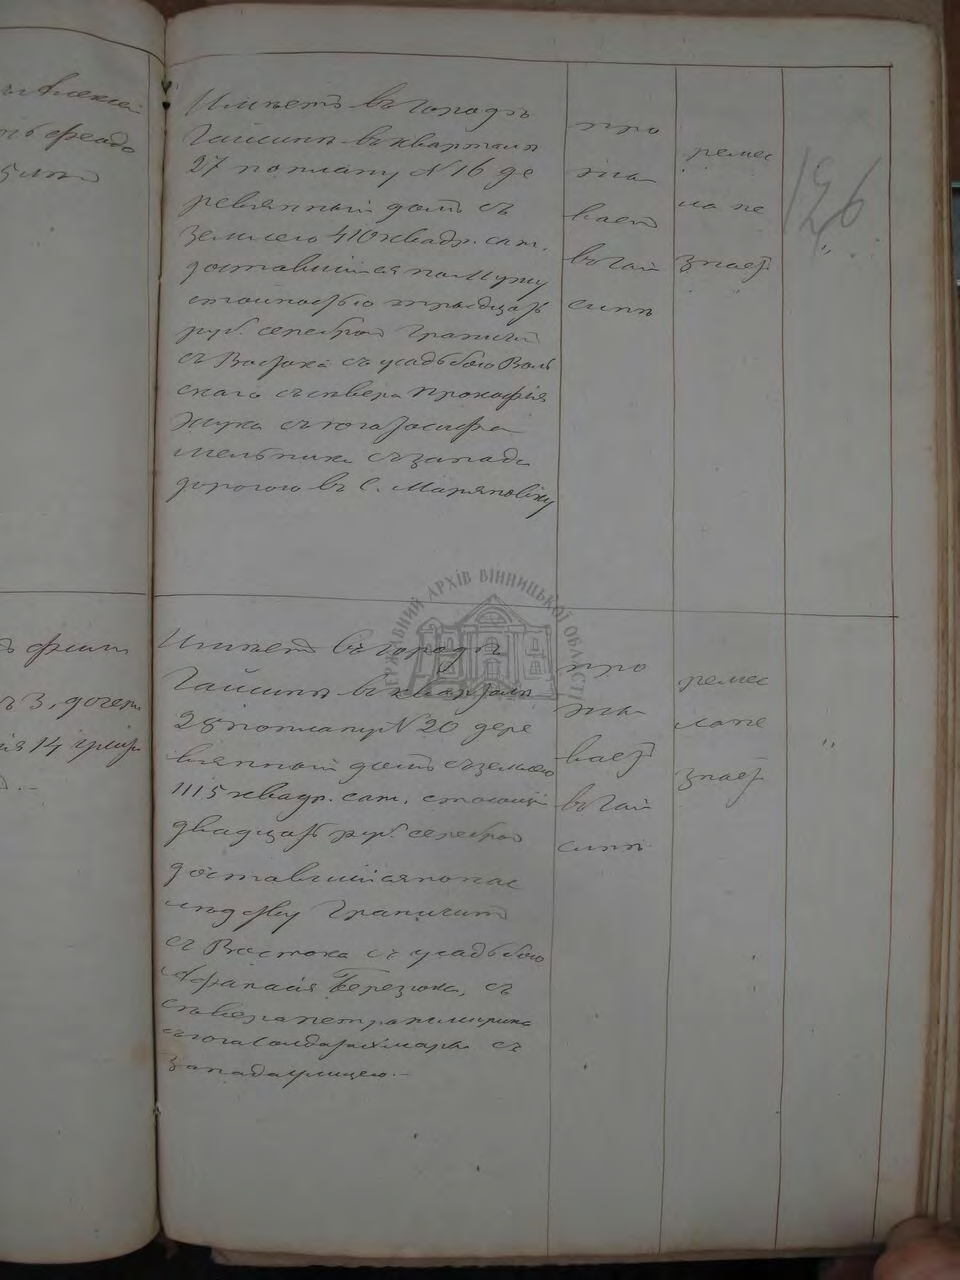 126
Имѣетъ въ городѣ
Гайсинѣ въ кварталѣ
27 по плану N 16 де
ревянный домъ съ
землею 410 квадр. саж.
доставшійся по мужу
стоимостью тридцать
руб. серебромъ Граничит
съ Востока съ усадьбою Воль
скаго съ сѣвера Прокофія
Жука съ юга Іосифа
Мельника съ запада
дорогою въ с. Маряновку
про
жи
ваетъ
въ Гай
синѣ
ремес
ла не
знаетъ
"
Алексѣй
5 лѣтъ
Имѣетъ въ городѣ
Гайсинѣ въ кварталѣ
28 по плану N 20 дере
вянный домъ съ землею
1115 квадр. саж. стоющій
двадцать руб. серебромъ
доставшійся по нас
лѣдству Граничитъ
съ Востока съ усадьбою
Афанасія Березюка, съ
сѣвера Петра
съ юга съ
запада улицею. –
про
жи
ваетъ
въ Гай
синѣ
ремес
ла не
знаетъ
"
3, дочери
14
ДЕРЖАВНИЙ АРХІВ ВІННИЦЬКОЇ ОБЛАСТІ